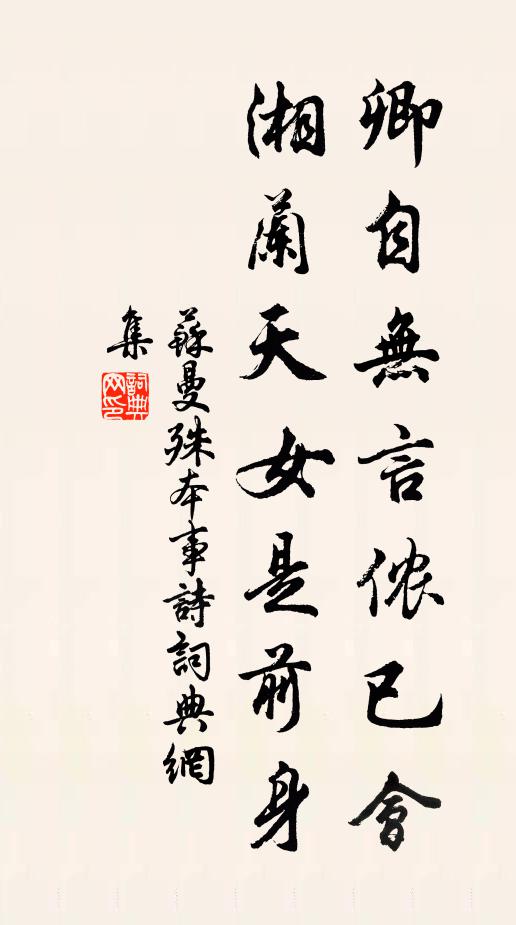 卿自無言侬已會
湘蘭天女是前身
蘇曼殊本事詩詞典網
集
詞典
网印